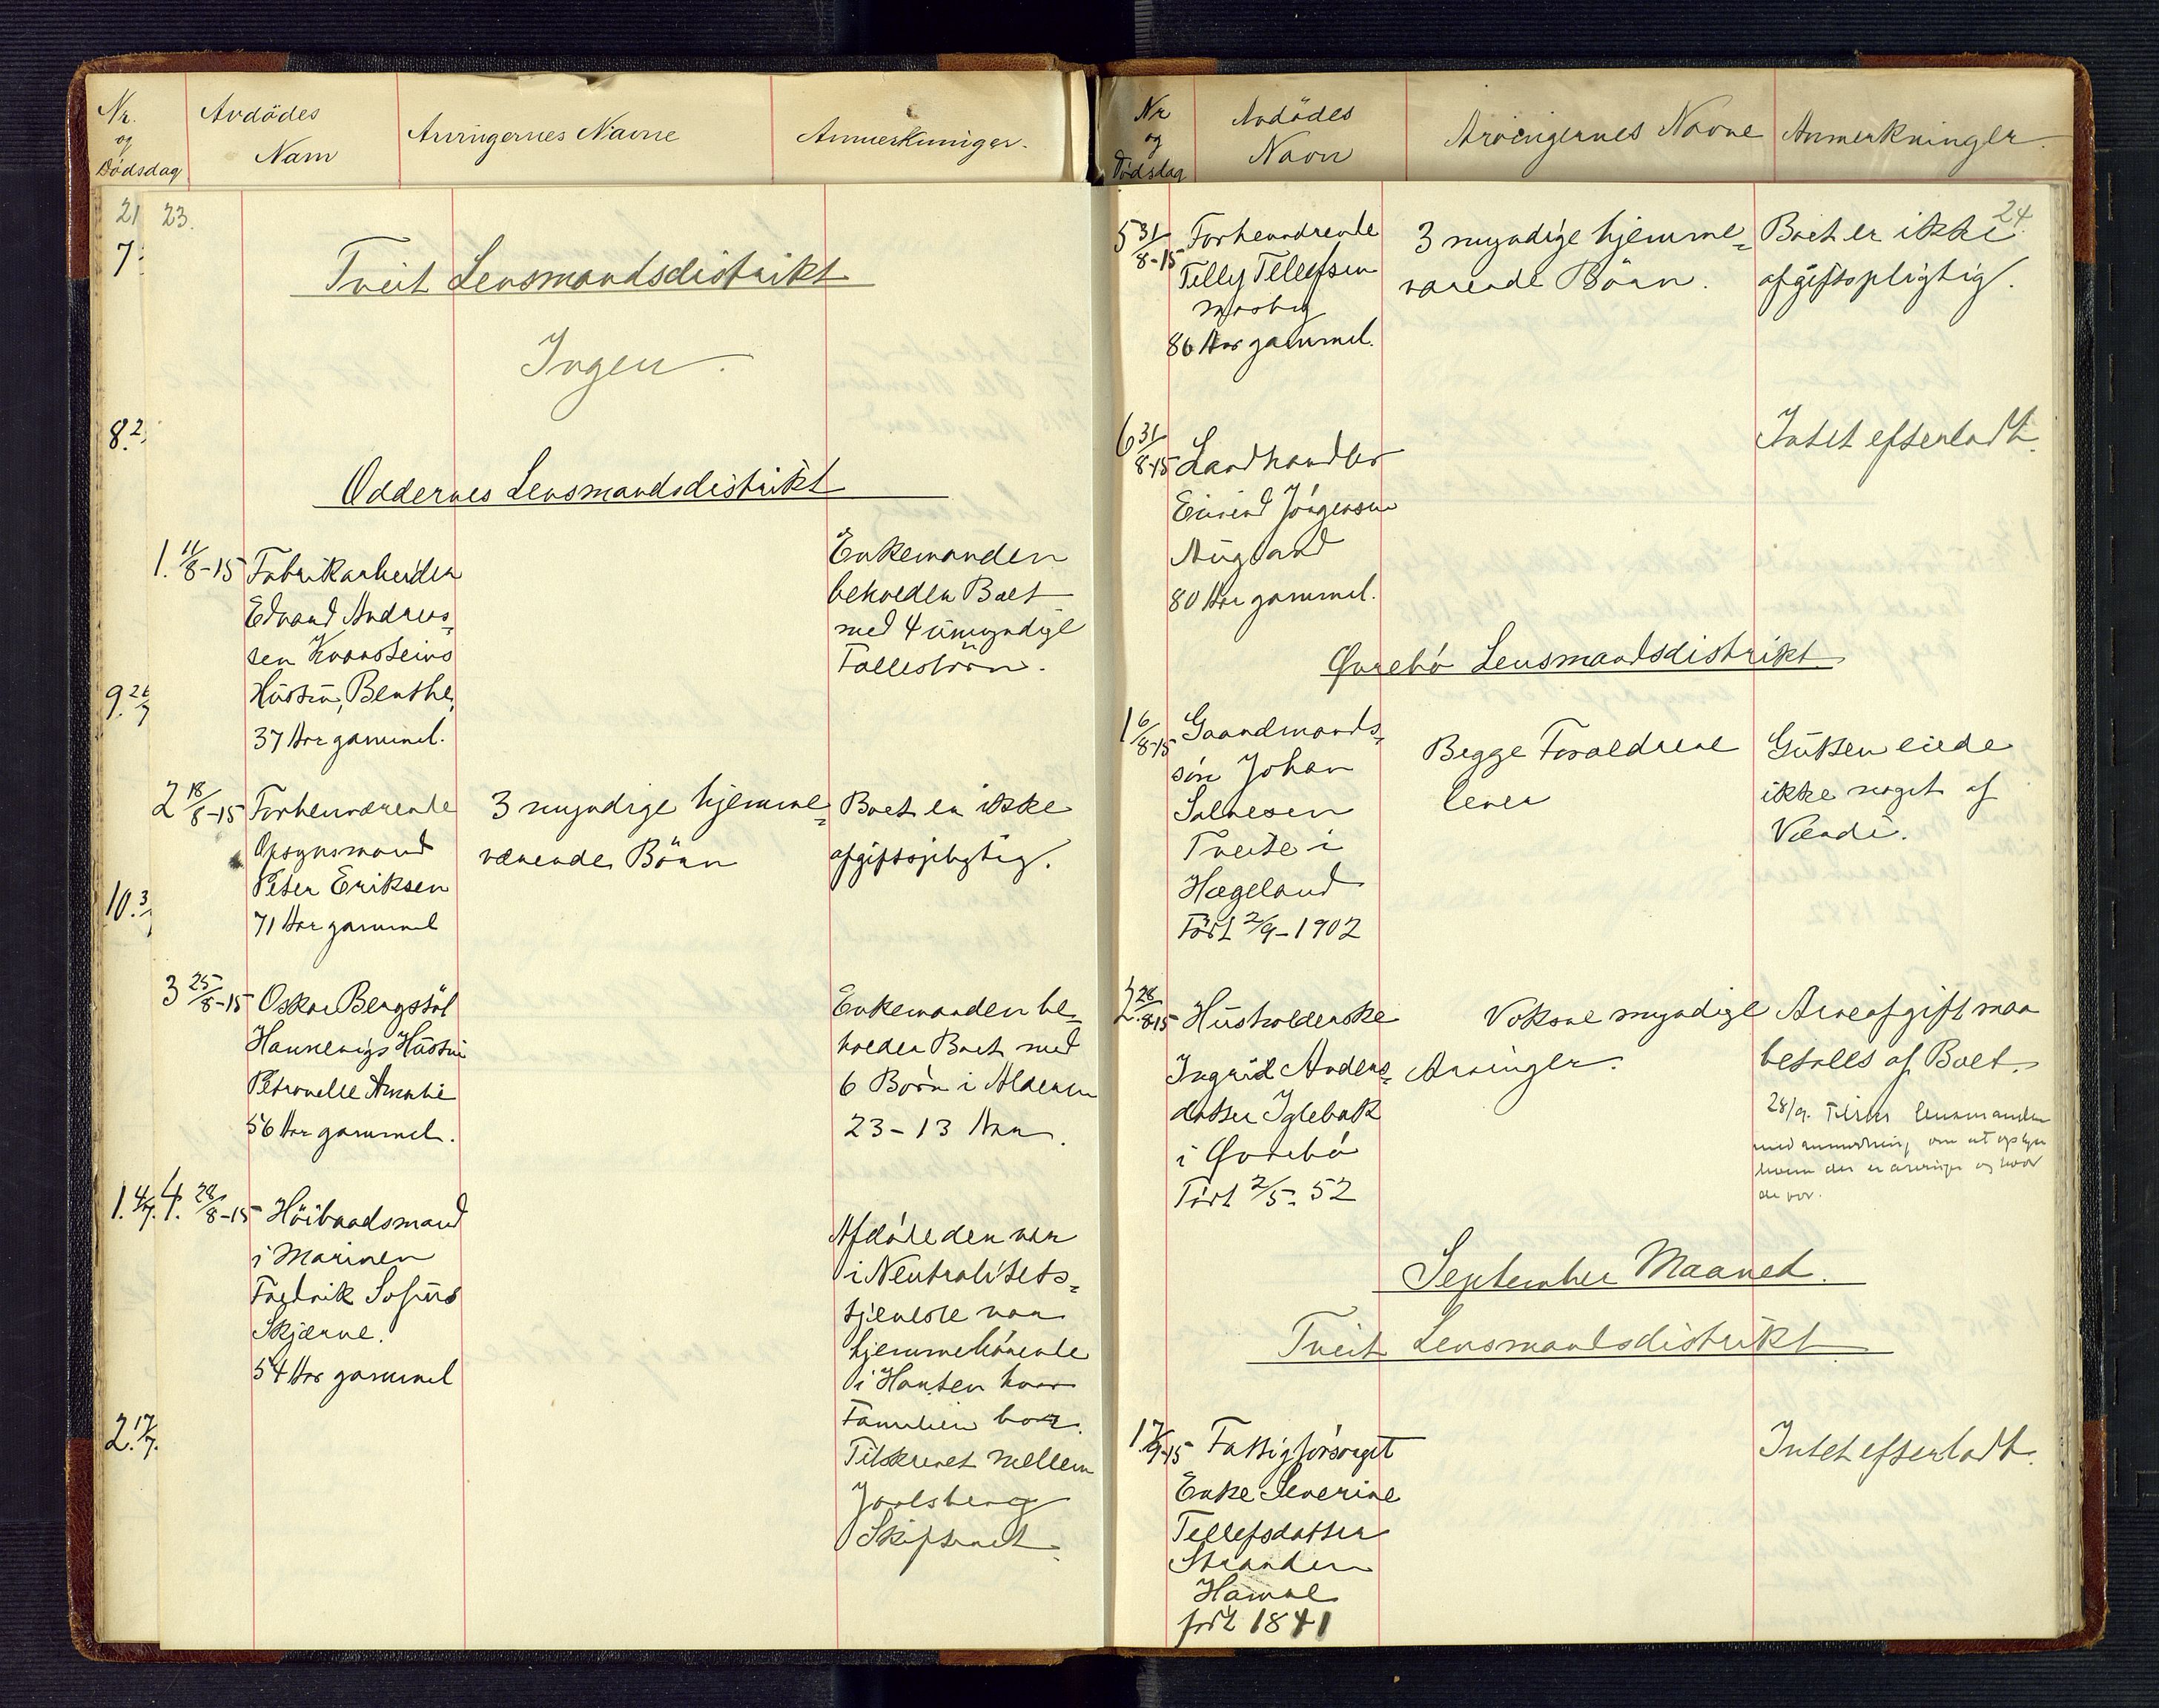 Nr. og Dödsdag
Avdödes Navn
Arvingernes Navne
Anmerkninger.
21
23.
7.
Tveit Lensmandsdistrikt
Ingen.
8. 2/
Oddernes Lensmandsdistrikt
1. 11/8-15
Fabrikarbeider
Edvard Andreas-
sen Kvarsteins
Hustru, Benthe,
37 Aar gammel.
Enkemanden
beholder Boet
med 4 umyndige
Fællesbörn.
9. 26/7
2 18/8-15
Forhenværende
Opsynsmand
Peter Eriksen
71 Aar gammel
3 myndige hjemme-
værende Börn
Boet er ikke
afgiftspligtig.
10. 3/
3 25/8-15
Oskar Bergstöl
Hannevigs Hustru
Petronelle Amalie
56 Aar gammel.
Enkemanden be-
holder Boet med
6 Börn i Alderen
23-13 Aar.
1. 4/7.
4. 28/8-15
Höibaadsmand
i Marinen
Fredrik Sofus
Skjærve.
54 Aar gammel
Afdöde der var
i Neutralitets-
tjeneste var
hjemmehörende
i Horten hvor
Familien bor.
Tilskrevet mellem
Jarlsberg
Skifteret.
2. 17/7.
Nr og Dödsdag
Avdödes Navn
Arvingernes Navne
Anmerkninger.
24.
5 31/8-15
Forhenværende
Telly Tellefsen
Mosby
86 Aar gammel.
3 myndige hjemme-
værende Börn.
Boet er ikke
afgiftspligtig.
6 31/8-15
Landhandler
Eivind Jörgensen
Augland
80 Aar gammel.
Intet efterladt.
Øvrebö Lensmandsdistrikt
1 6/8-15
Gaardmands-
sön Johan
Salvesen
Tveite i
Hægeland
Född 2/9-1902
Begge Forældrene
lever
Gutten eiede
ikke noget af
Værdi.
2. 28/8-15
Husholderske
Ingrid Anders-
datter Iglebæk
i Øvrebö
Född 2/5-52
Voksne myndige
Arvinger.
Arveafgift maa
betales af Boet.
28/9. Tilskr lensmanden
med anmodning om at opgi
hvem der er arvinger og hvor
de bor.
September Maaned.
Tveit Lensmandsdistrikt
1 7/9-15
Fattigforsörget
Enke Severine
Tellefsdatter
Stranden
Hamre
född 1841
Intet efterladt.